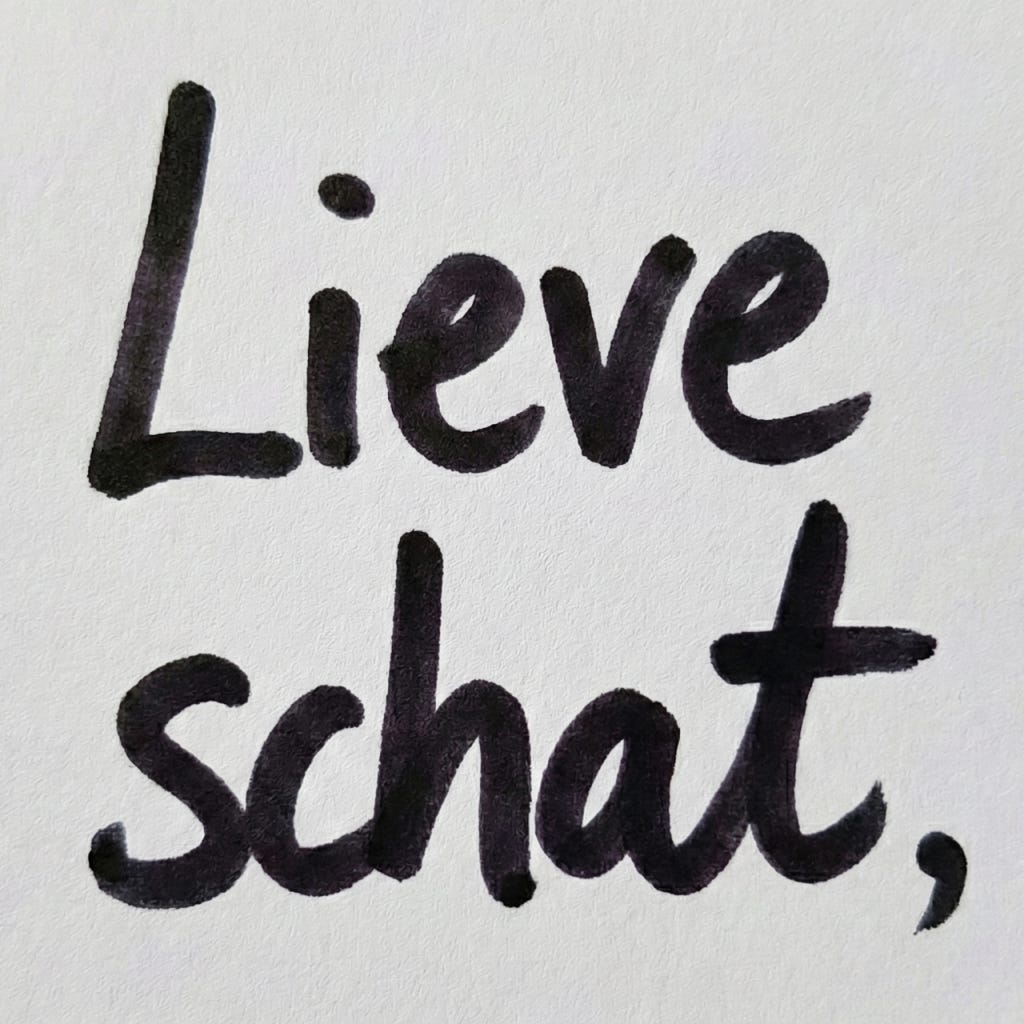 Lieve
schat,